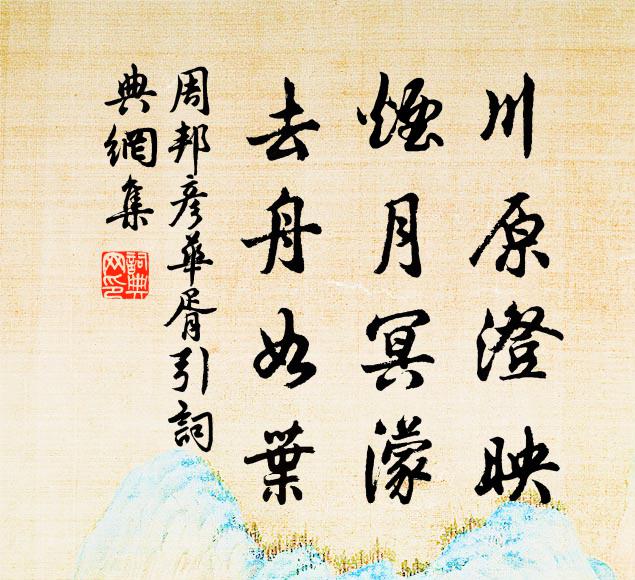 川原澄映
煙月冥濛
去舟如葉
周邦彥華胥引詞
典網集
詞典网印